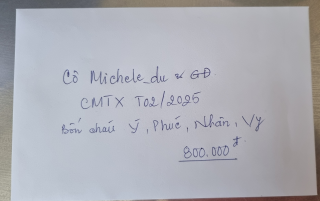 Cô Michele_du & GĐ
CMTX T02/2025
Bốn cháu Ý, Phúc, Nhân, Vy
800.000đ